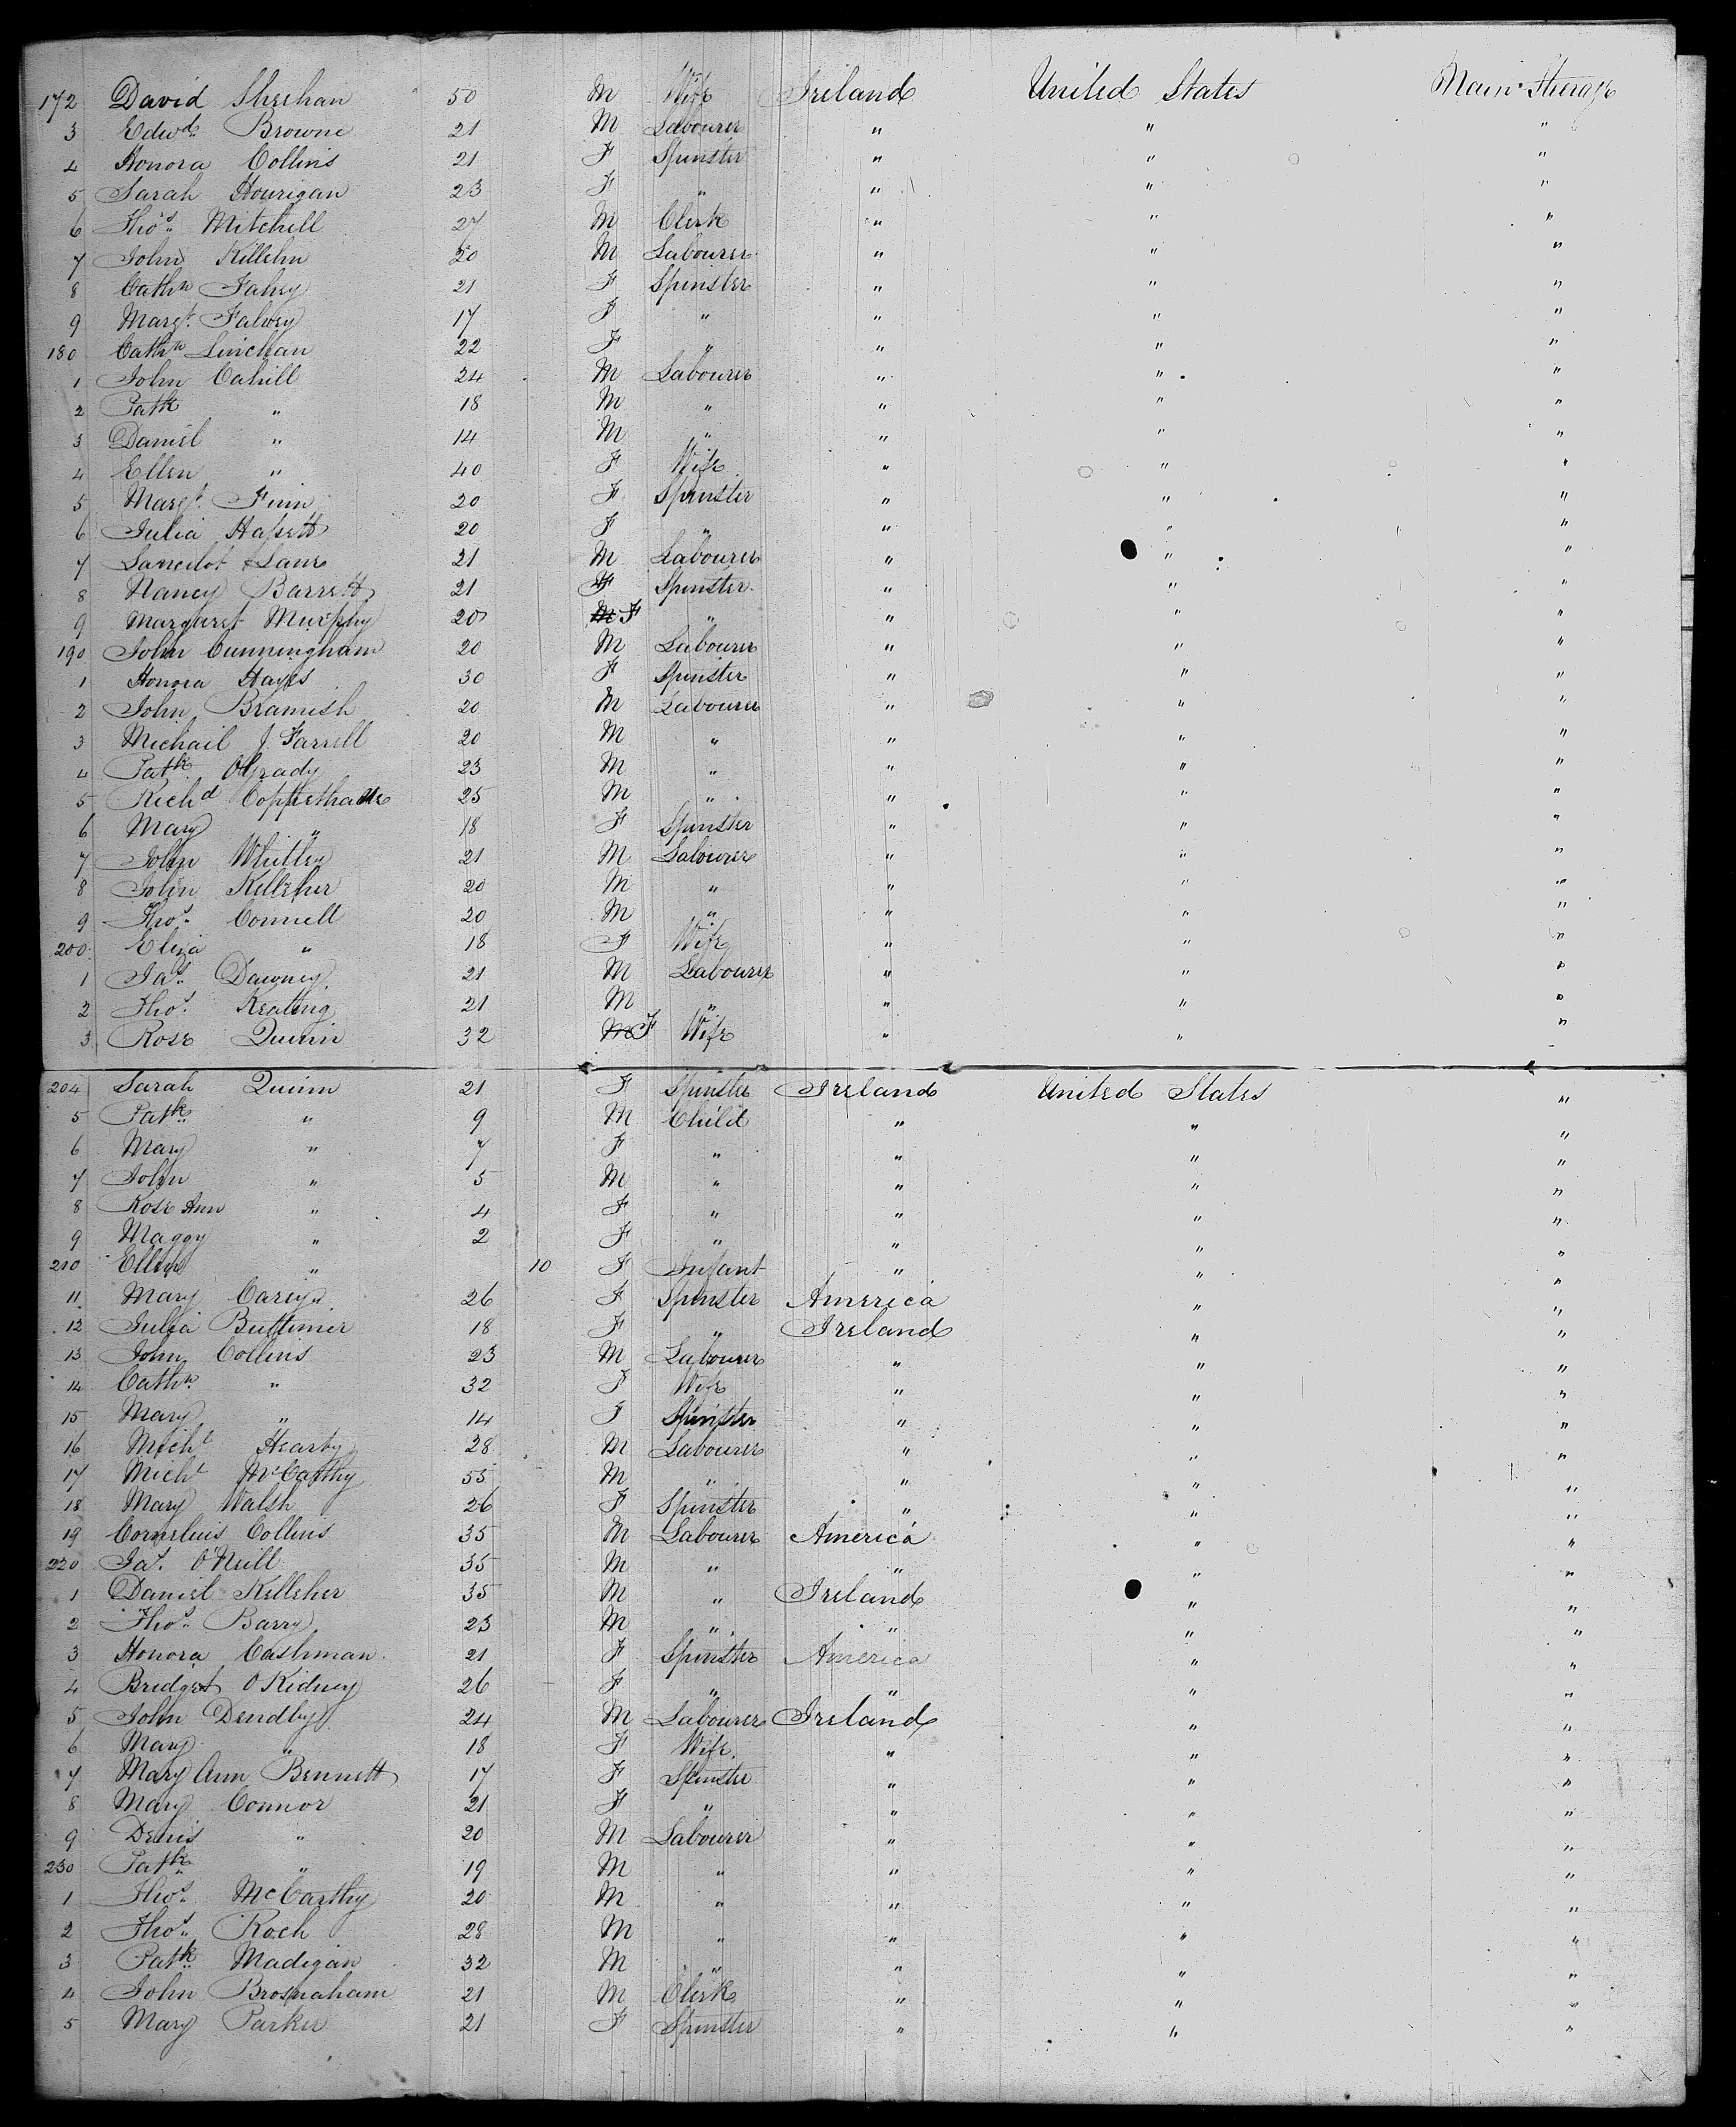 172 David Sheehan 50 M Wife Ireland United States Main Steerage
3 Edwd. Browne 21 M Labourer " " "
4 Honora Collins 21 F Spinster " " "
5 Sarah Hourigan 23 F " " " "
6 Thos. Mitchell 27 M Clerk " " "
7 John Killehn 20 M Labourer " " "
8 Cathn Fahey 21 F Spinster " " "
9 Margt. Falvey 17 F " " " "
180 Cathn Linehan 22 F " " " "
1 John Cahill 24 M Labourer " " "
2 Patk " 18 M " " " "
3 Daniel " 14 M " " " "
4 Ellen " 40 F Wife " " "
5 Margt. Finn 20 F Spinster " " "
6 Julia Hassett 20 F " " " "
7 Lancelot Lane 21 M Labourer " " "
8 Nancy Barrett 21 F Spinster " " "
9 Margaret Murphy 20 F " " " "
190 John Cunningham 20 M Labourer " " "
1 Honora Hayes 30 F Spinster " " "
2 John Bramish 20 M Labourer " " "
3 Michail J. Farrell 20 M " " " "
4 Patk. OGrady 23 M " " " "
5 Richd 25 M " " " "
6 Mary " 18 F Spinster " " "
7 John Whitley 21 M Labourer " " "
8 John Killeher 20 M " " " "
9 Thos. Connell 20 M " " " "
200 Eliza " 18 F Wife " " "
1 Jas. Dawney 21 M Labourer " " "
2 Thos. Keating 21 M " " " "
3 Rose Quinn 32 F Wife " " "
204 Sarah Quinn 21 F Spinster Ireland United States "
5 Patk. " 9 M Child " " "
6 Mary " 7 F " " " "
7 John " 5 M " " " "
8 Rose Ann " 4 F " " " "
9 Maggy " 2 F " " " "
210 Ellen " 10 F Infant " " "
11 Mary Carey 26 F Spinster America " "
12 Julia Buttimer 18 F " Ireland " "
13 John Collins 23 M Labourer " " "
14 Cathn. " 32 F Wife " " "
15 Mary " 14 F Spinster " " "
16 Michl Hearty 28 M Labourer " " "
17 Michl McCarthy 55 M " " " "
18 Mary Walsh 26 F Spinster " " "
19 Cornelius Collins 35 M Labourer America " "
220 Jas. O'Neill 35 M " " " "
1 Daniel Kelleher 35 M " Ireland " "
2 Thos. Barry 23 M " " " "
3 Honora Cashman 21 F Spinster America " "
4 Bridget O Kidney 26 F " " " "
5 John Dendby 24 M Labourer Ireland " "
6 Mary " 18 F Wife " " "
7 Mary Ann Bennett 17 F Spinster " " "
8 Mary Connor 21 F " " " "
9 Denis " 20 M Labourer " " "
230 Patk. " 19 M " " " "
1 Thos. McCarthy 20 M " " " "
2 Thos. Roch 28 M " " " "
3 Patk. Madigan 32 M " " " "
4 John Brosnaham 21 M Clerk " " "
5 Mary Parker 21 F Spinster " " "